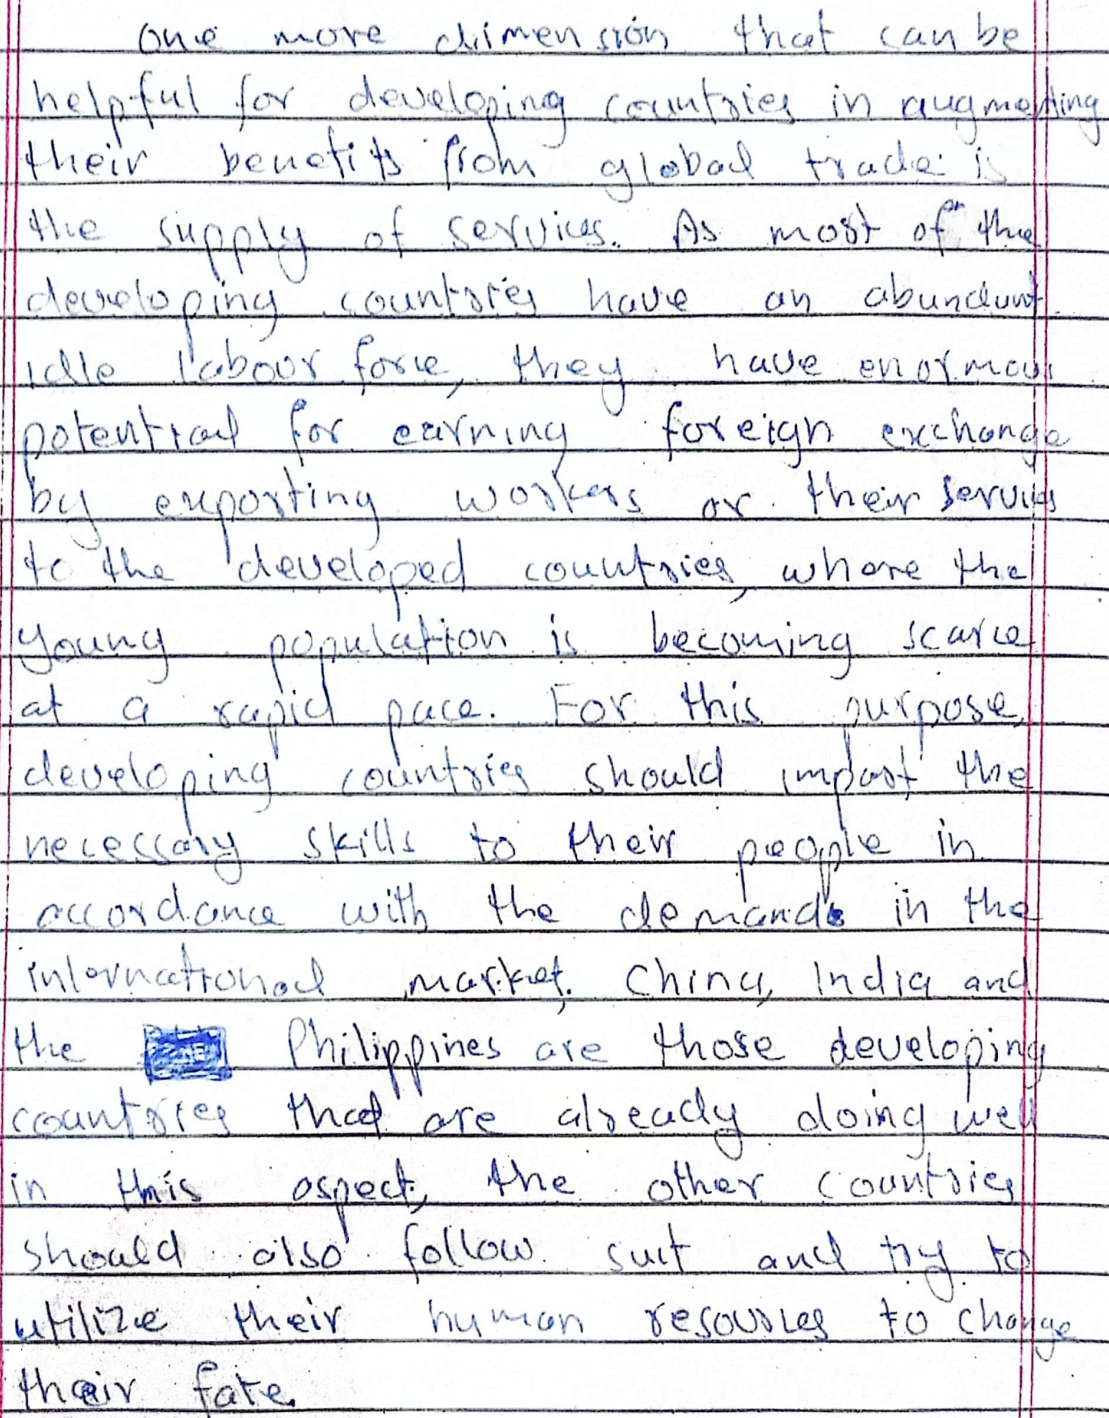 One more dimension that can be
helpful for developing countries in augmenting
their benefits from global trade is
the supply of services. As most of the
developing countries have an abundant
idle labour force, they have enormous
potential for earning foreign exchange
by exporting workers or their services
to the developed countries, where the
young population is becoming scarce
at a rapid pace. For this purpose,
developing countries should impart the
necessary skills to their people in
accordance with the demands in the
international market. China, India and
the Philippines are those developing
countries that are already doing well
in this aspect, the other countries
should also follow suit and try to
utilize their human resources to change
their fate.